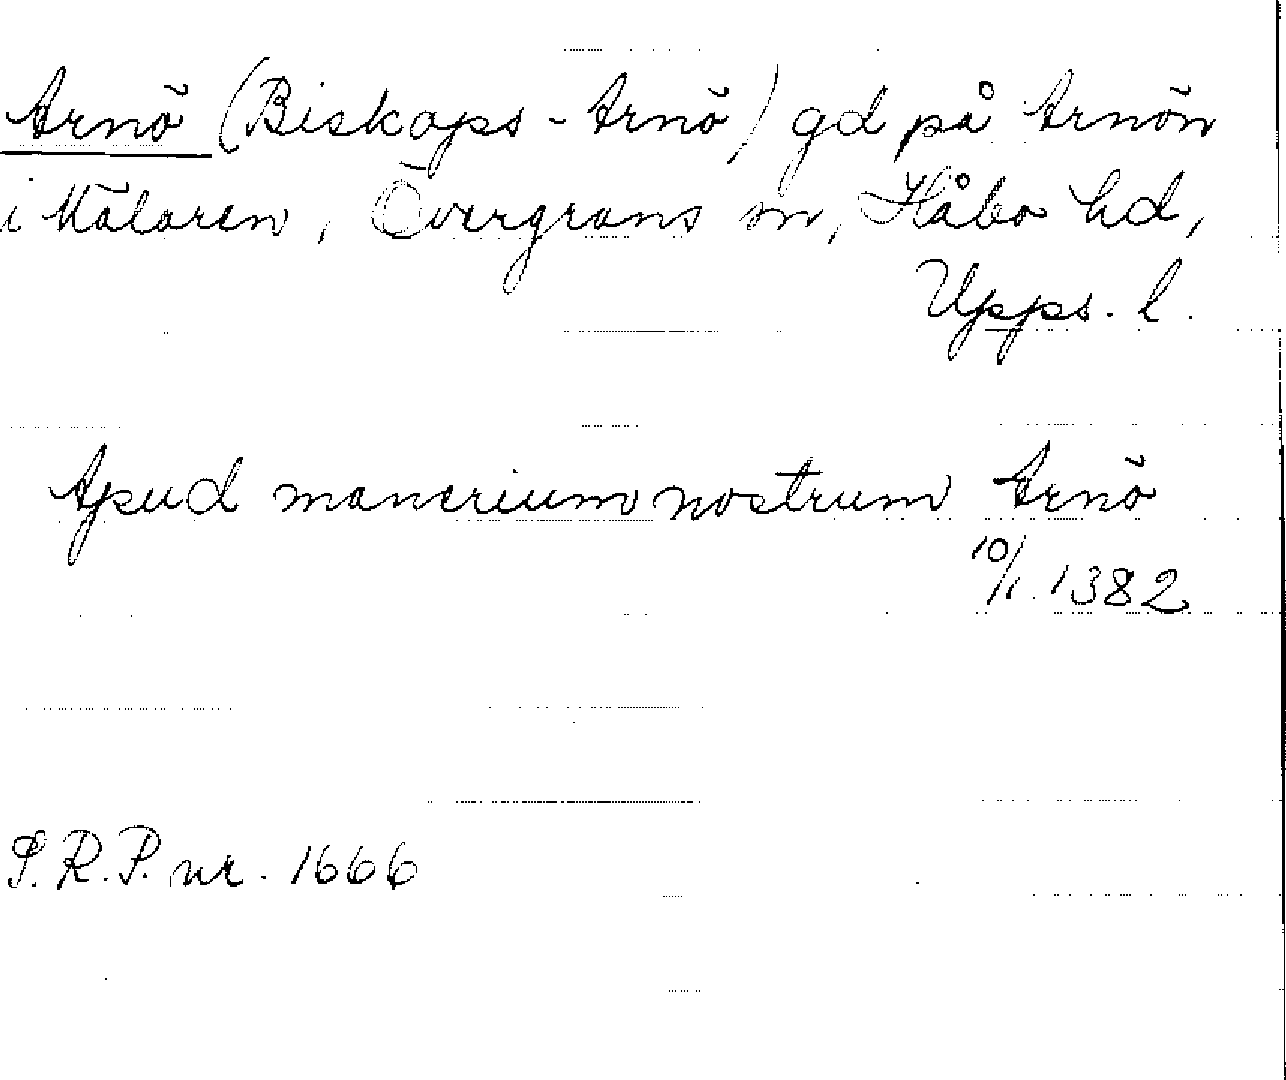 Arnö (Biskops-Arnö) gd på Arnön
i Mälaren, Övergrans sn, Håbo hd,
Upps. l.
Apud manerium nostrum Arnö
10/1. 1382
S.R.P. nr. 1666